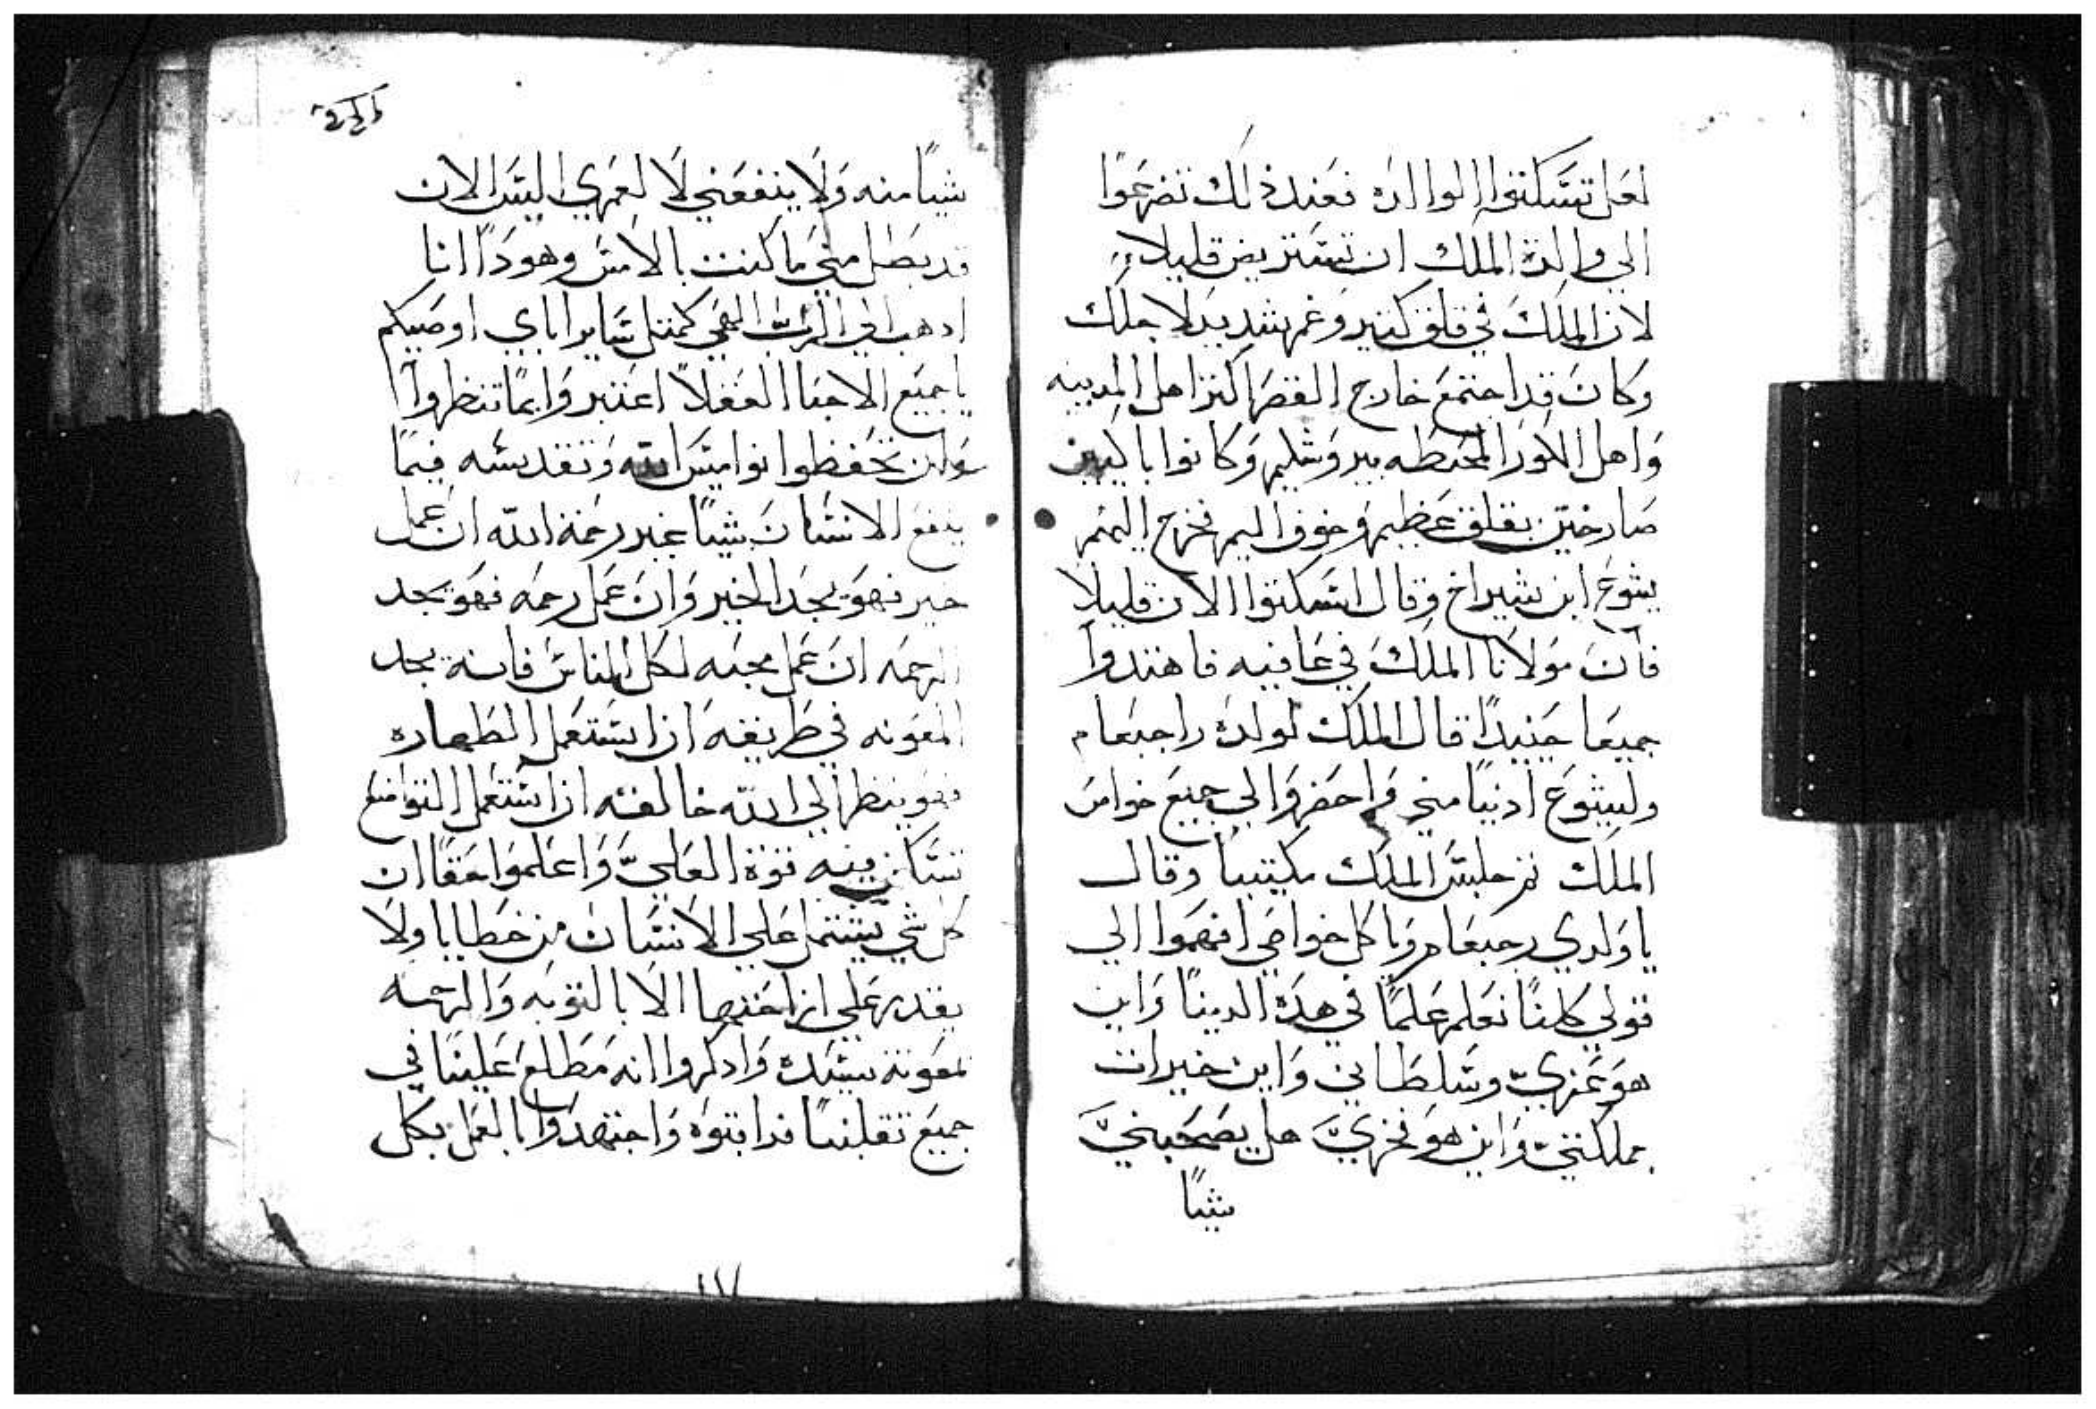 لعل تسكتوا الوالده فعند ذلك تضرعوا
الي والدة الملك ان تستريض قليلاء
لان الملك في قلق كتير وغم شديد لاجلك
وكان قد اجتمع خارج القصر اكتر اهل المدينه
واهل الكور المحيطه بيروشليم وكانوا باكيين
صارخين بقلق عظيم وخوف اليم فخرج اليهم
يشوع ابن شيراخ وقال اسكتوا الان قليلا
فان مولانا الملك في عافيه فاهتدوا
جميعا حينيدا قال الملك لولده راحبعام
وليشوع ادنيا مني واحضروا الي جميع خواص
الملك تم جلس الملك مكيتبا وقال
يا ولدي رحبعام ويا كل خواصي افهموا الي
قولي كلنا نعلم علما في هده الدينا واين
هو عزي وسلطاني واين خيرات
مملكتي واين هو فخري هل يصحبني
شيا
شيا منه ولا ينفعني لا لعمري اليس الان
قد بطل مني ما كنت بالامس وهودا انا
ادهب الي الرب الهي كمتل ساير اباي اوصيكم
يا جميع الاحبا العقلا اعتبروا بما تنظروا
وان تحفظوا نواميس الله وتقديسه فيما
ينفع الانسان شيا غير رحمة الله ان عمل
خير فهو يجد الخير وان عمل رحمه فهو يجد
الرحمه ان عمل محبه لكل الناس فانه يجد
المعونه في طريقه ان استعمل الطهاره
فهو ينظر الي الله خالقه ان استعمل التواضع
تساكن فيه قوة العلي واعلموا حقا ان
كل شي يشتمل علي الانسان من خطايا ولا
يقدر علي ان احدها الا بالتوبه والرحمه
لمعونة سيده وادكروا انه مطلع علينا في
جميع تقلبنا فراقبوه واجتهدوا بالعمل بكل
١٧